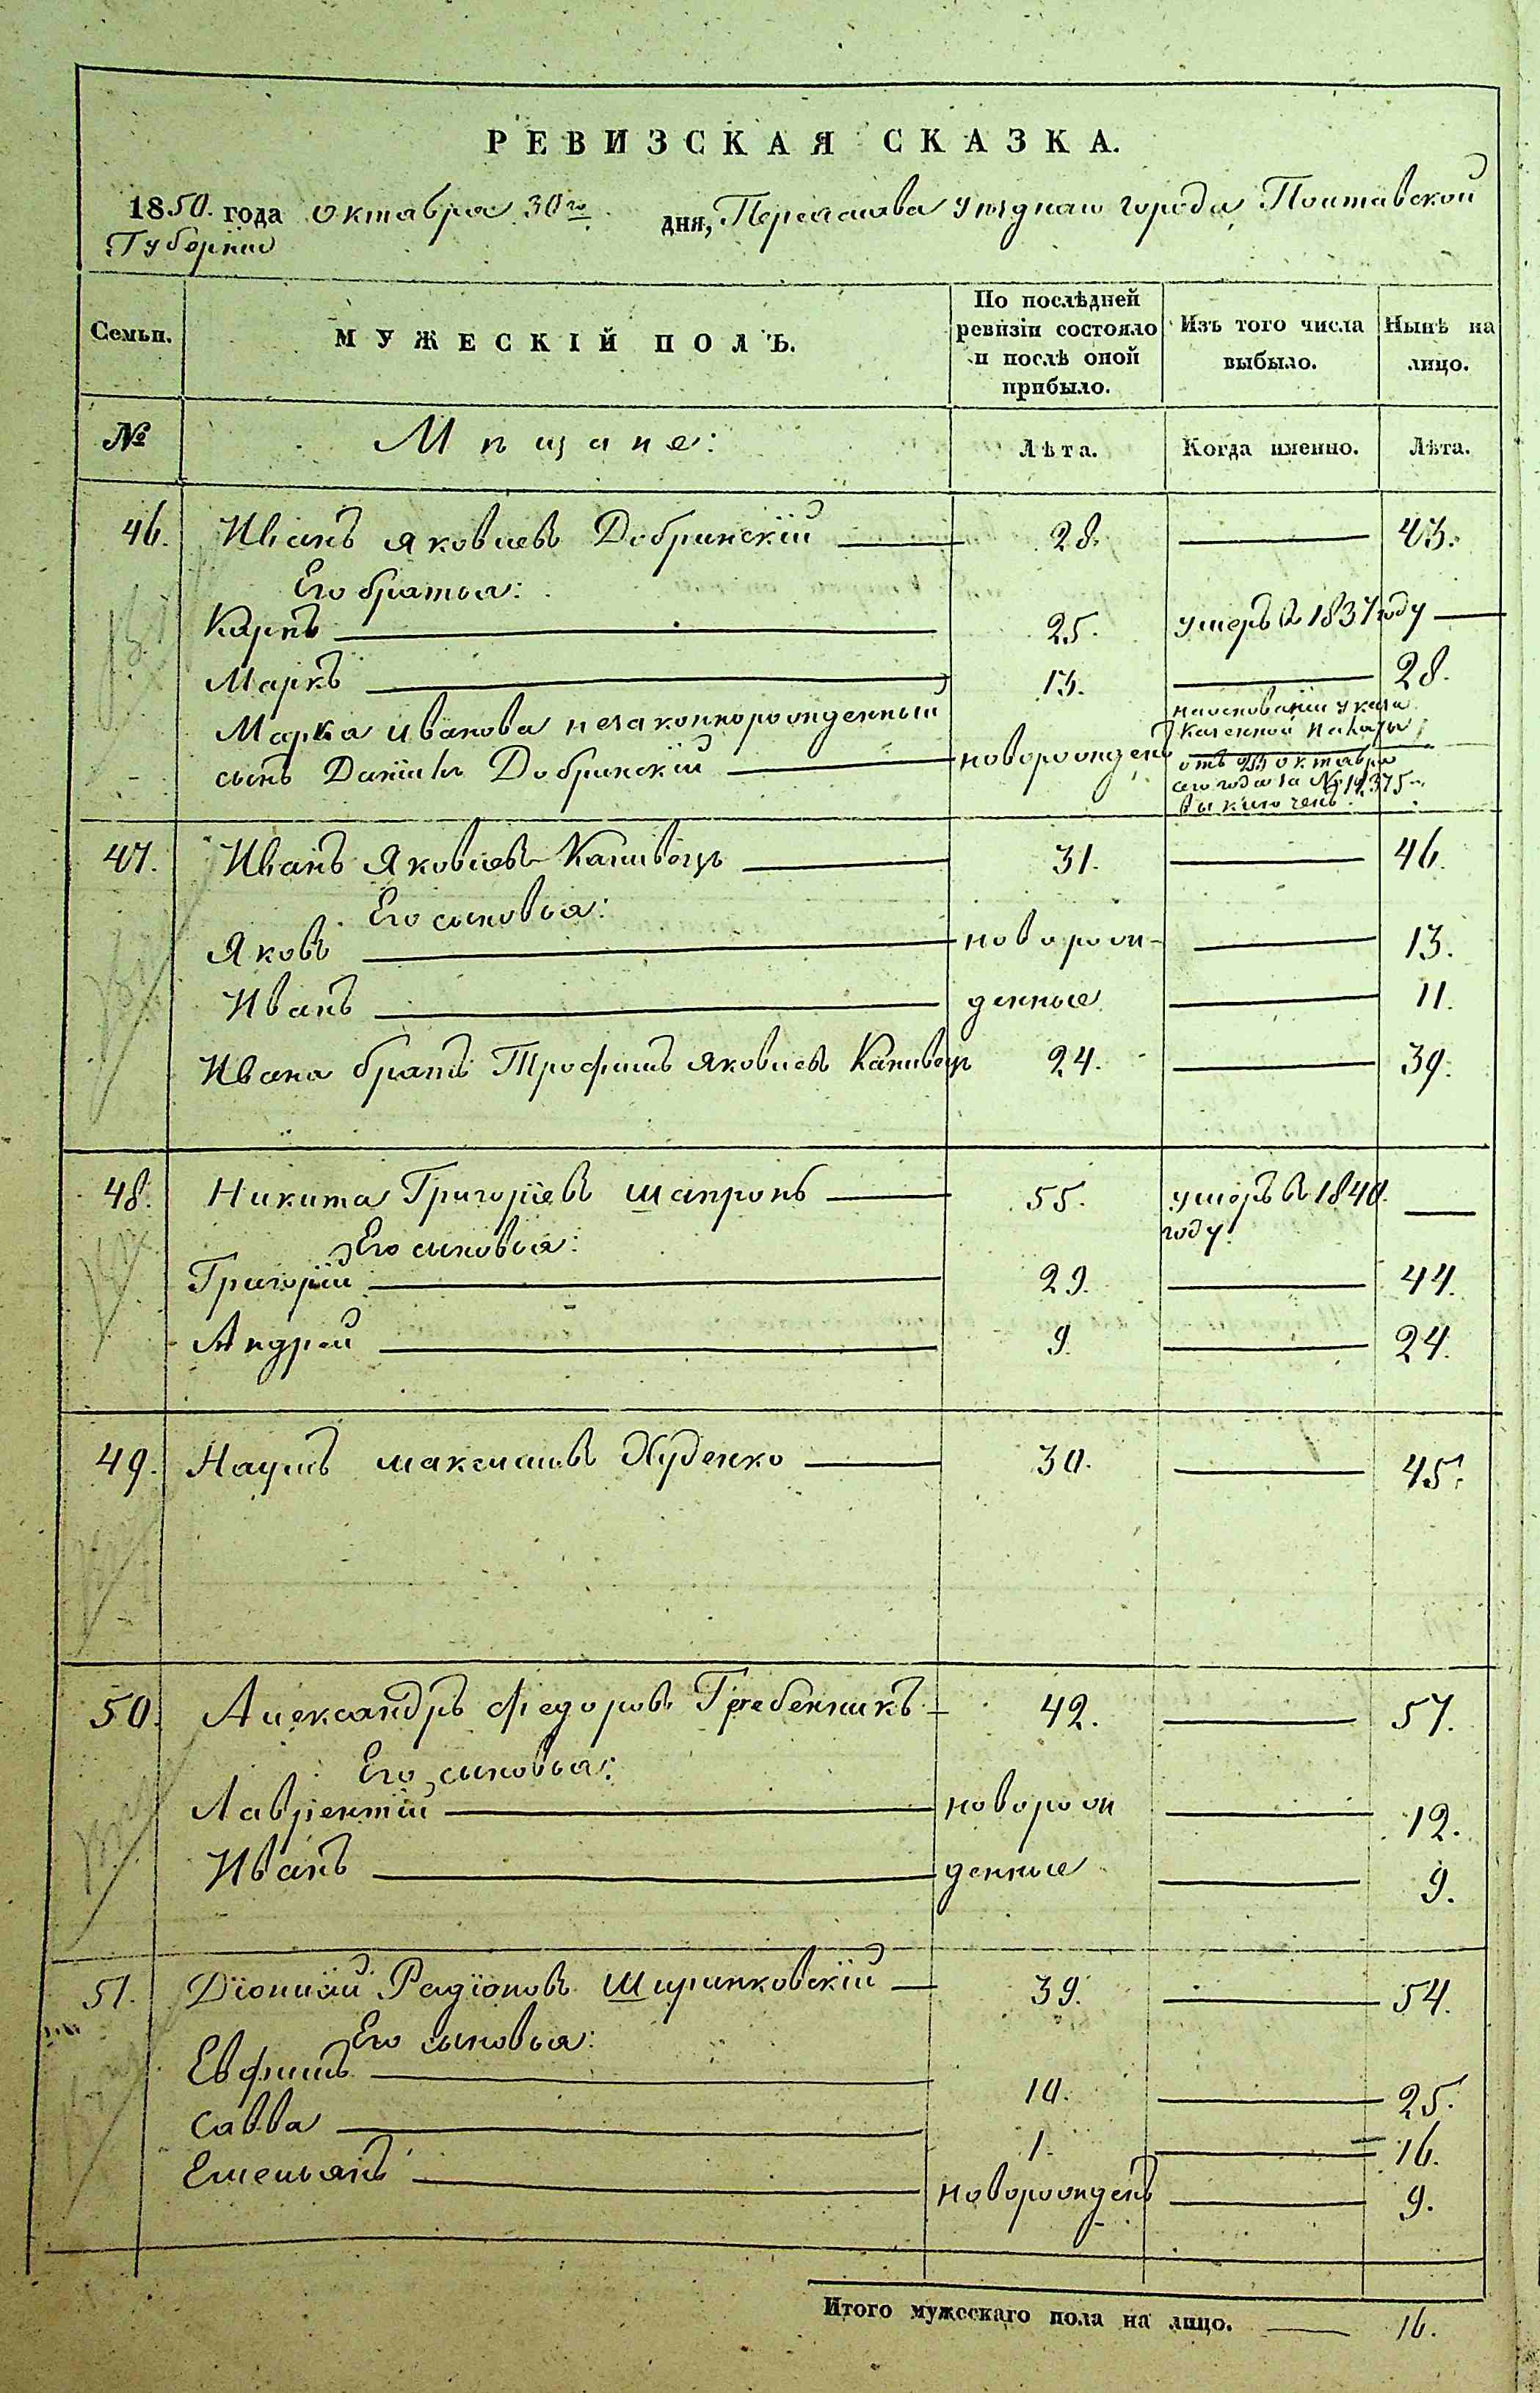 РЕВИЗСКАЯ СКАЗКА.
1850. года октября 30го дня, Переяслава уѣзднаго города, Полтавской
Губерніи
Семьи.
МУЖЕСКІЙ ПОЛЪ.
По послѣдней
ревизіи состояло
и послѣ оной
прибыло.
Изъ того числа
выбыло.
Нынѣ на
лицо.
№ Мѣщане: Лѣта. Когда именно. Лѣта.
46. Иванъ Яковлевъ Добринскій 28. 43.
Его братья:
Карпъ 25. умеръ в 1837 году
Маркъ 13. 28.
Марка Иванова незаконнорожденный
сынъ Даніилъ Добринскій новорожденъ
на основаніи указа
Казенной Палаты
отъ октября
сего года за № 19375
выключенъ.
47. Иванъ Яковлевъ Каливецъ 31. 46.
Его сыновья:
Яковъ новорож- 13.
Иванъ денные 11.
Ивана братъ Трофимъ Яковлевъ Каливецъ 24. 39.
48. Никита Григоріевъ Шапронъ 55. умеръ в 1840.
году.
Его сыновья:
Григорій 29. 44.
Андрей 9. 24.
49. Наумъ Максимовъ Худенко 30. 45.
50. Александръ Федоровъ Гребенникъ 42. 57.
Его сыновья:
Лаврентій новорож 12.
Иванъ денные 9.
51. Діонисій Радіоновъ Ширинковскій 39. 54.
Его сыновья:
Евфимъ 10. 25.
Савва 1. 16.
Емельянъ новорожденъ 9.
Итого мужескаго пола на лицо. 16.